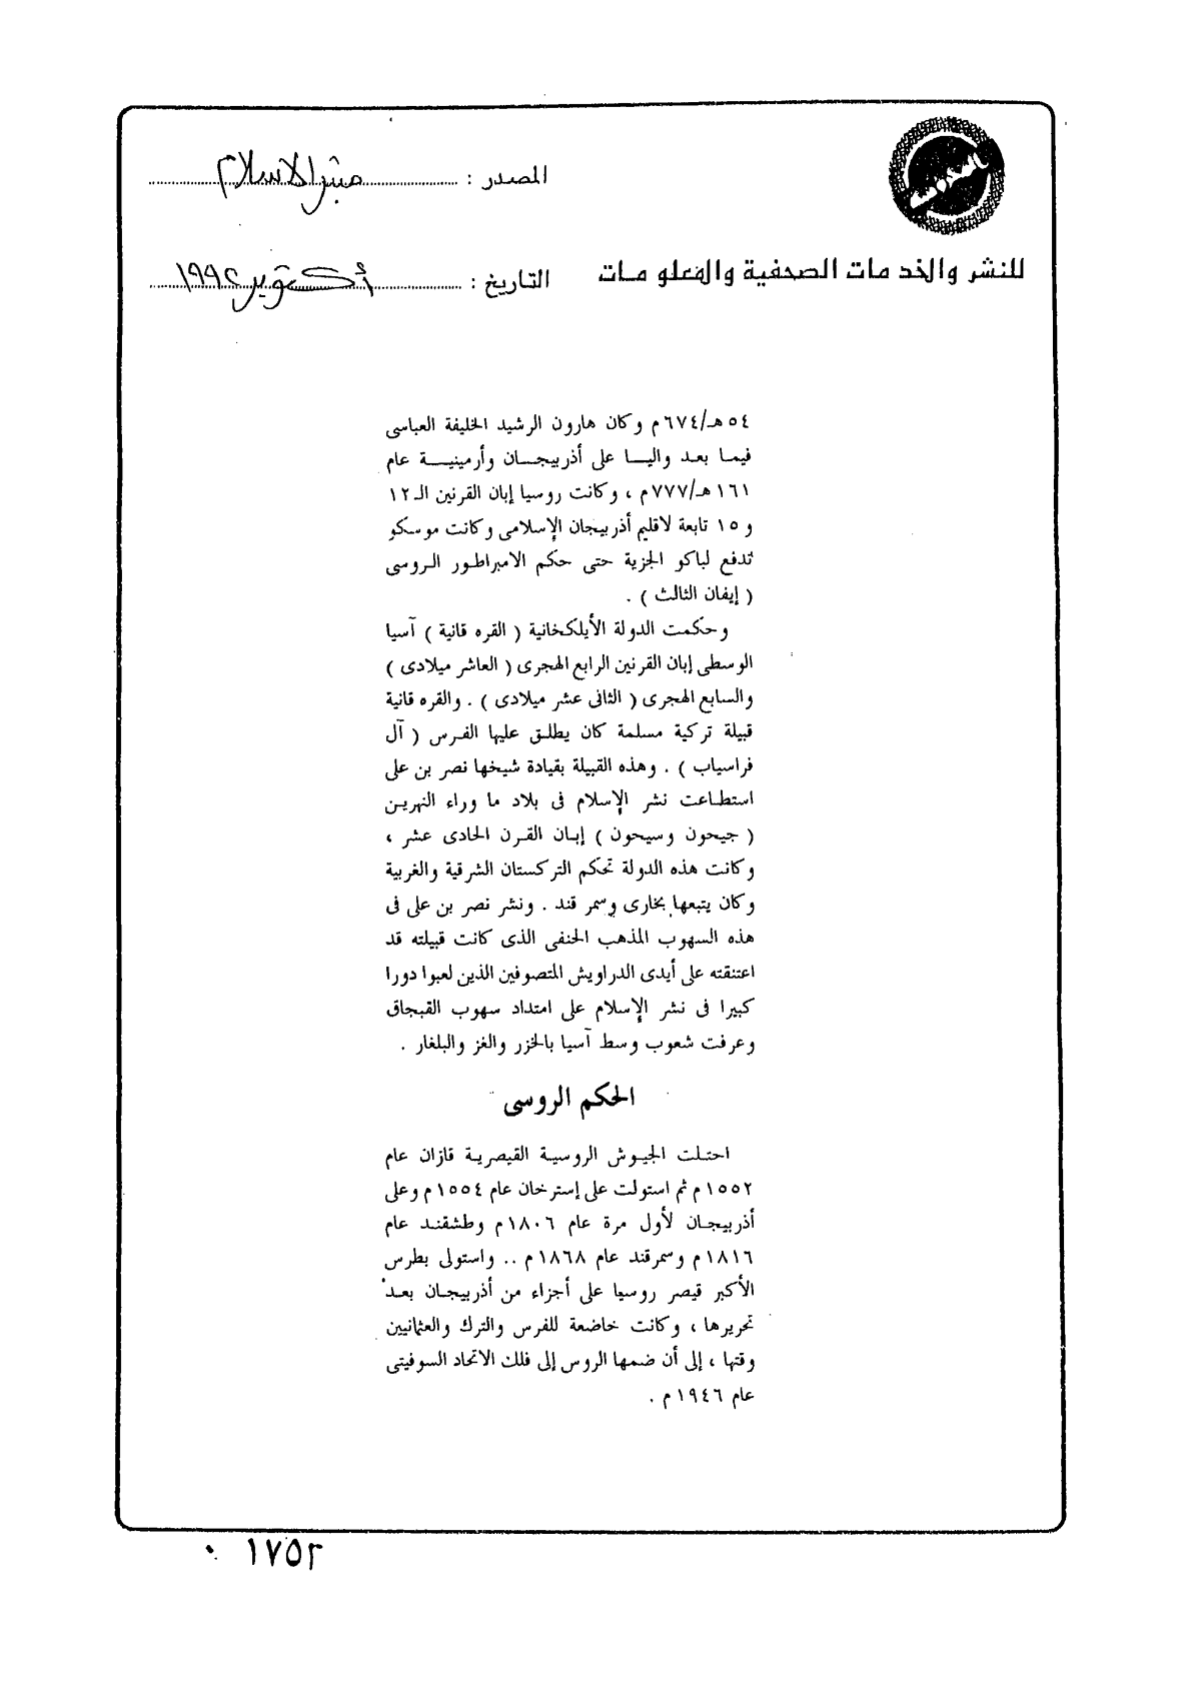 المصدر : منبر الاسلام
للنشر والخدمات الصحفية والمعلومات
التاريخ : أكتوبر ١٩٩٢
٥٤ هـ/٦٧٤ م وكان هارون الرشيد الخليفة العباسى
فيما بعد واليا على أذربيجان وأرمينية عام
١٦١ هـ/٧٧٧ م ، وكانت روسيا إبان القرنين الـ ١٢
و ١٥ تابعة لاقليم أذربيجان الإسلامى وكانت موسكو
تدفع لباكو الجزية حتى حكم الامبراطور الروسى
( إيفان الثالث ) .
وحكمت الدولة الأيلكخانية ( القره قانية ) آسيا
الوسطى إبان القرنين الرابع الهجرى ( العاشر ميلادى )
والسابع الهجرى ( الثانى عشر ميلادى ) . والقره قانية
قبيلة تركية مسلمة كان يطلق عليها الفرس ( آل
فراسياب ) . وهذه القبيلة بقيادة شيخها نصر بن على
استطاعت نشر الإسلام فى بلاد ما وراء النهرين
( جيحون وسيحون ) إبان القرن الحادى عشر ،
وكانت هذه الدولة تحكم التركستان الشرقية والغربية
وكان يتبعها بخارى وسمر قند . ونشر نصر بن على فى
هذه السهوب المذهب الحنفى الذى كانت قبيلته قد
اعتنقته على أيدى الدراويش المتصوفين الذين لعبوا دورا
كبيرا فى نشر الإسلام على امتداد سهوب القبجاق
وعرفت شعوب وسط آسيا بالخزر والغز والبلغار .
الحكم الروسى
احتلت الجيوش الروسية القيصرية قازان عام
١٥٥٢ م ثم استولت على إسترخان عام ١٥٥٤ م وعلى
أذربيجان لأول مرة عام ١٨٠٦ م وطشقند عام
١٨١٦ م وسمرقند عام ١٨٦٨ م .. واستولى بطرس
الأكبر قيصر روسيا على أجزاء من أذربيجان بعد
تحريرها ، وكانت خاضعة للفرس والترك والعثمانيين
وقتها ، إلى أن ضمها الروس إلى فلك الاتحاد السوفيتى
عام ١٩٤٦ م .
١٧٥٢ ٠